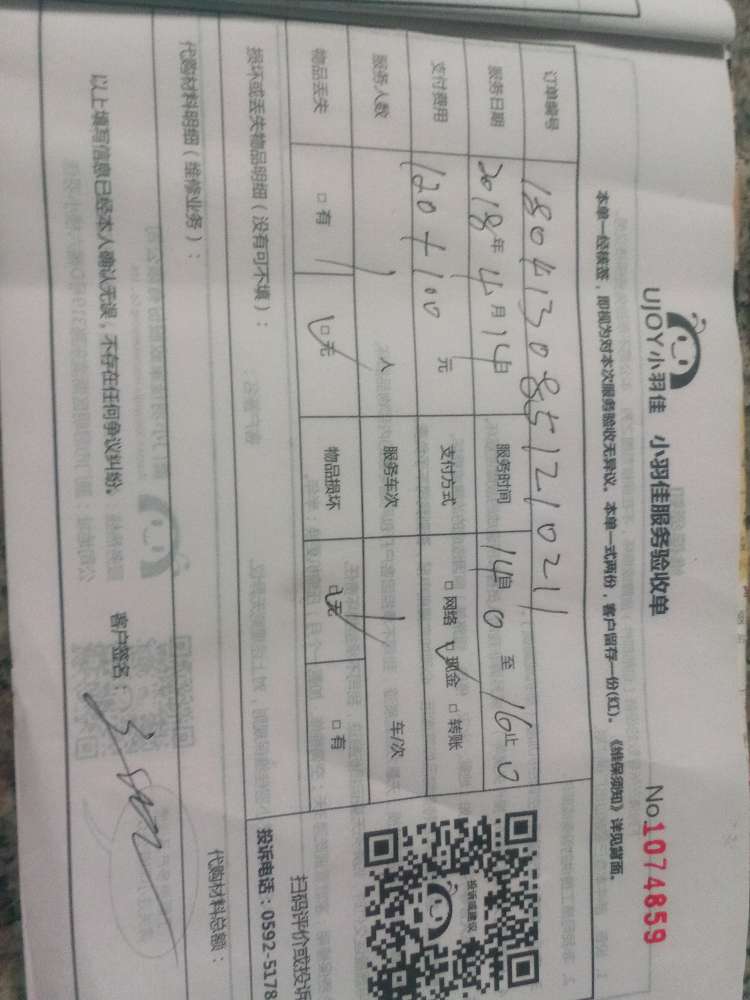 UJOY小羽佳 小羽佳服务验收单 No.1074859
本单一经核签，即视为对本次服务验收无异议。本单一式两份，客户留存一份(红)。《维保须知》详见背面。
订单编号 180413085121021
服务日期 2018年4月14日 服务时间 14自0至16止0
支付费用 120+100元 支付方式 □网络 □现金 □转账
服务人数 1人 服务车次 1车/次
物品丢失 □有 □无 物品损坏 □无 □有
损坏或丢失物品明细（没有可不填）：
代购材料明细（维修业务）： 代购材料总额：
以上填写信息已经本人确认无误，不存在任何争议纠纷。 客户签名：
投诉或建议
扫码评价或投诉
投诉电话：0592-5178